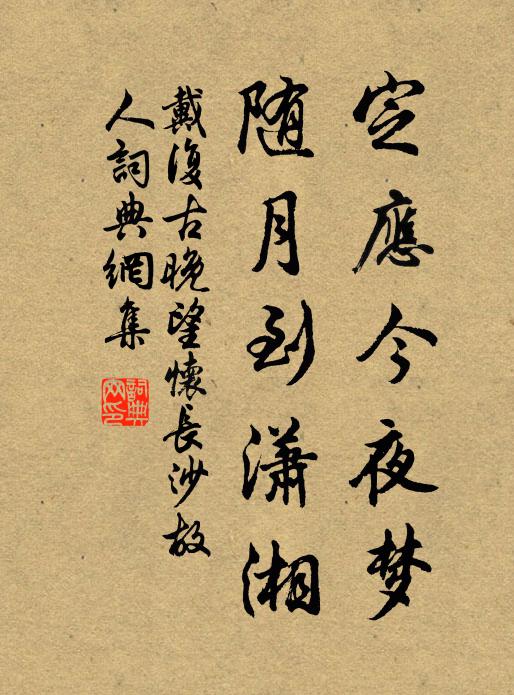 定應今夜梦
随月到瀟湘
戴復古晚望懷長沙故
人詞典網集
詞典网印